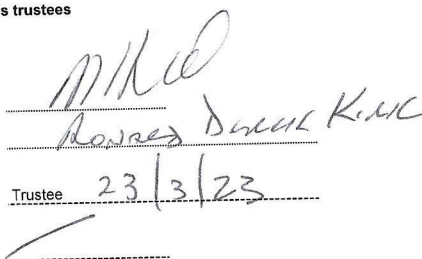 s trustees
Ronald Derek King
Trustee 23/3/23